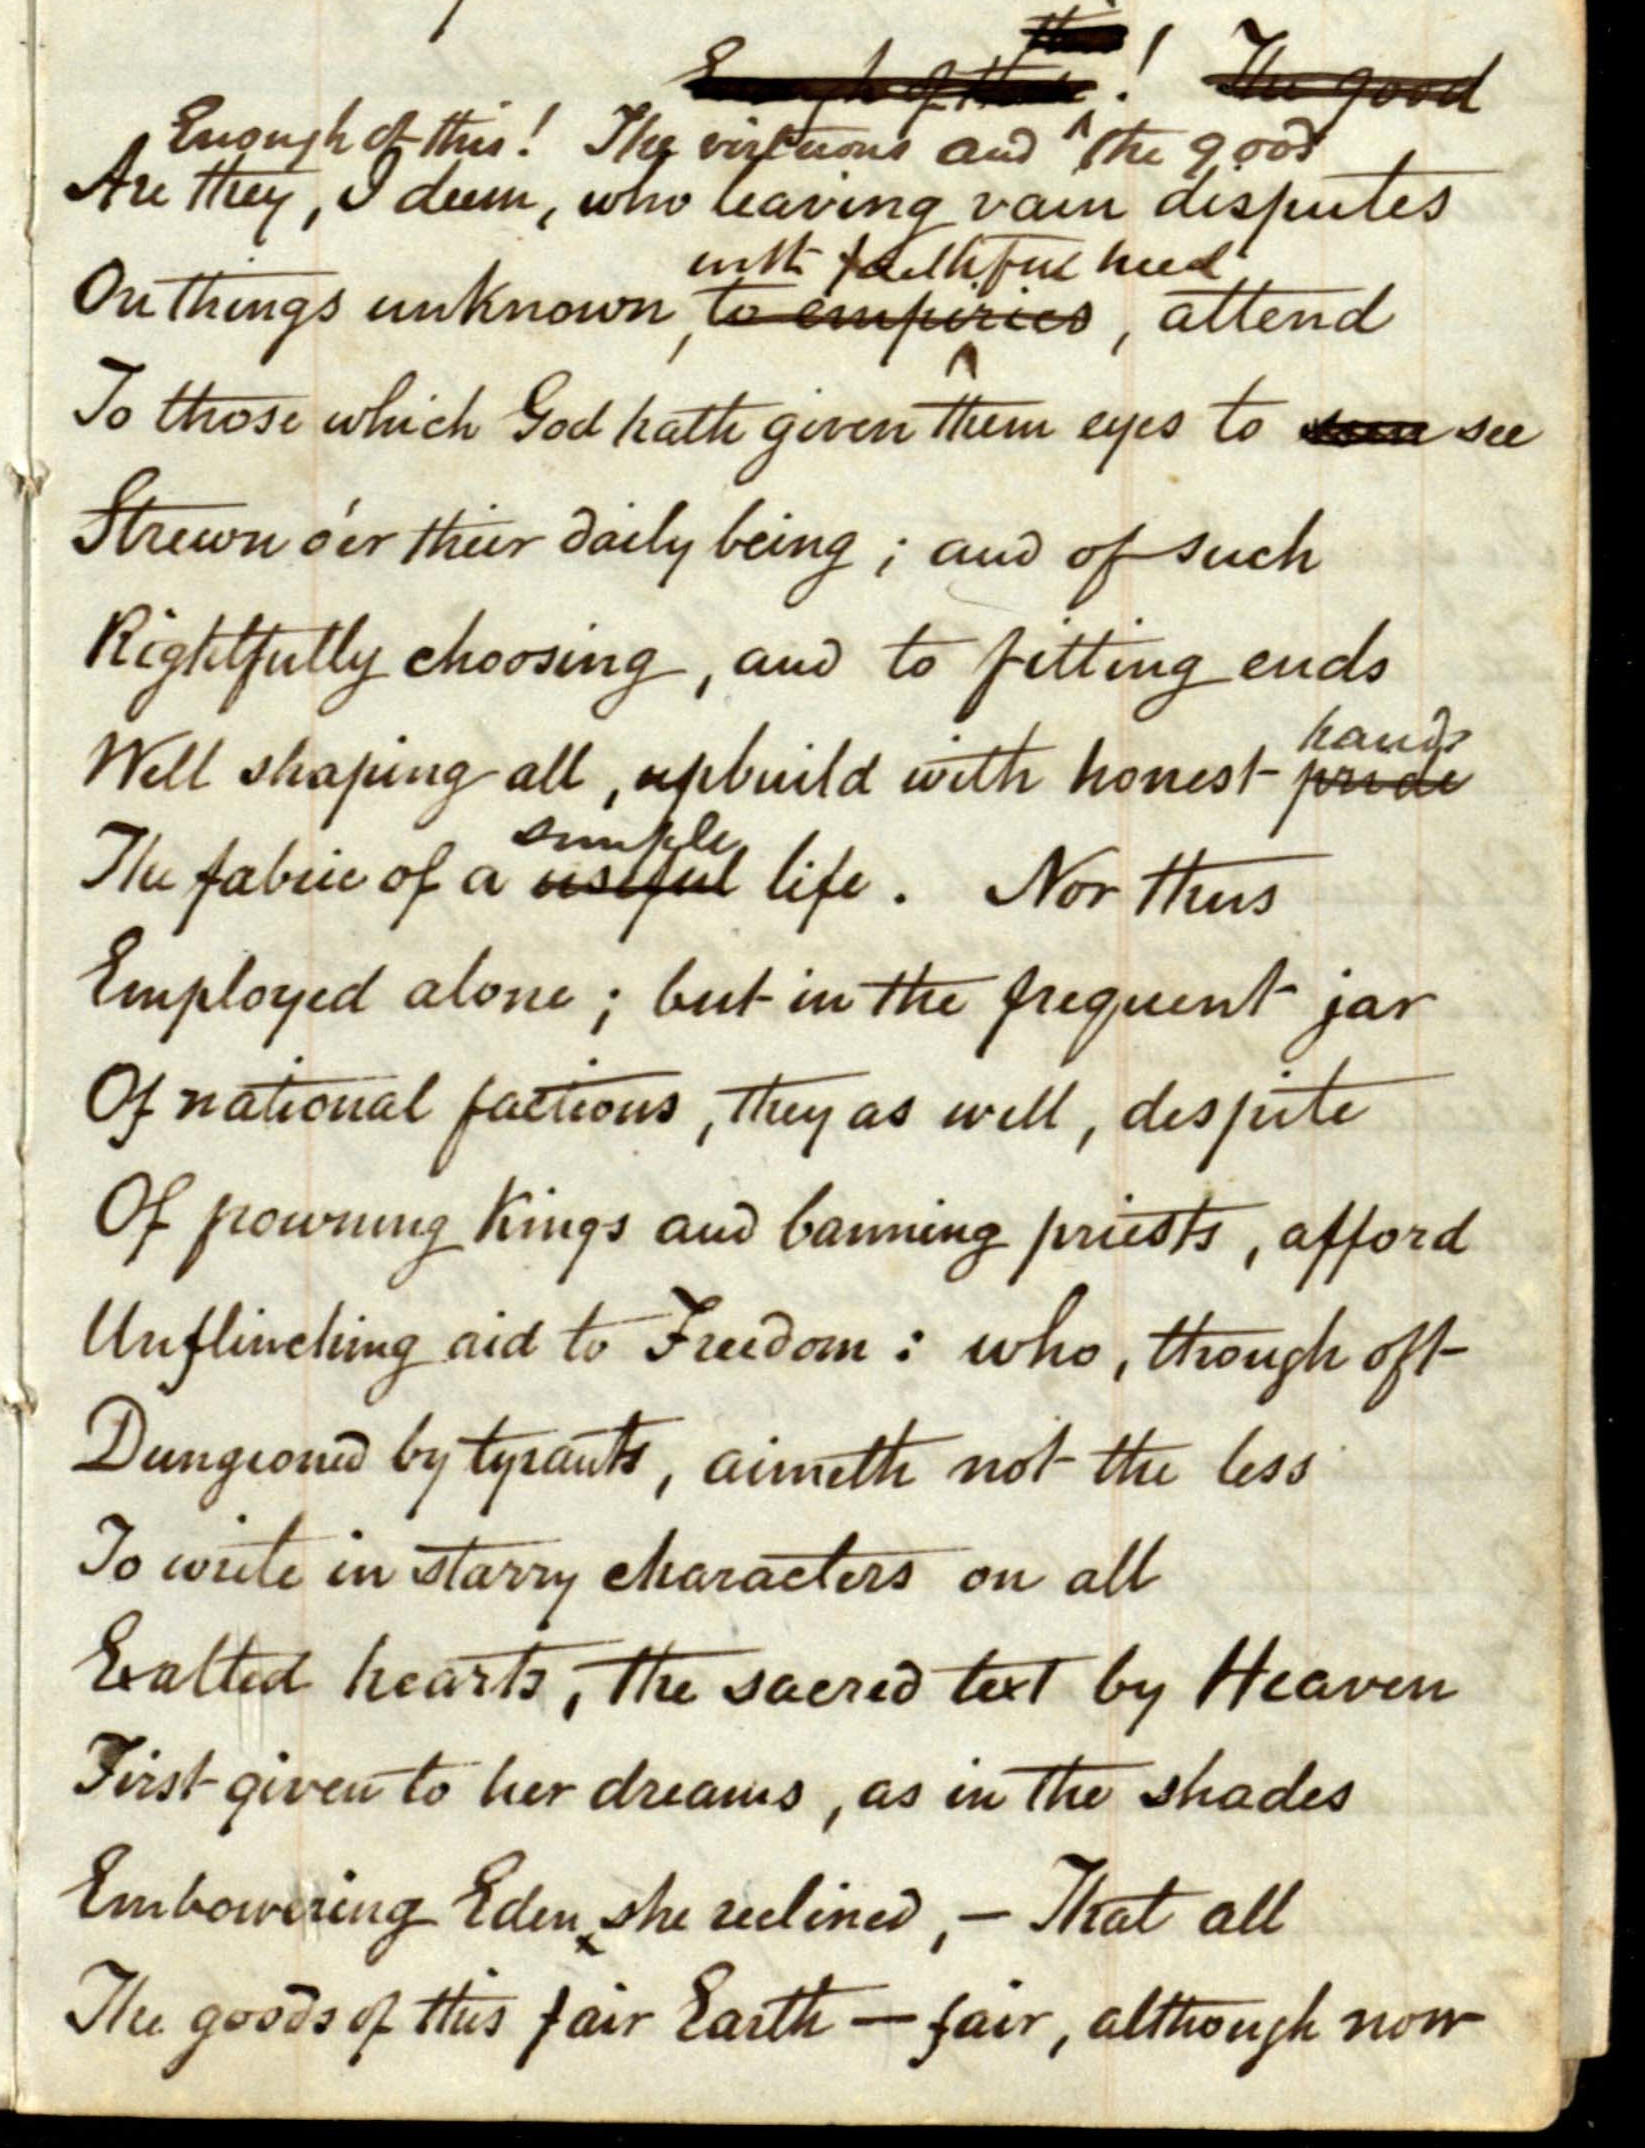 Enough of this! The good
Enough of this! The virtuous and the good
Are they, I deem, who leaving vain disputes
with faithful heed
On things unknown, to empirics, attend
To those which God hath given them eyes to see
Strewn o'er their daily being; and of such
Rightfully choosing, and to fitting ends
hands
Well shaping all, upbuild with honest pride
simple
The fabric of a useful life. Nor thus
Employed alone; but in the frequent jar
Of national factions, they as well, despite
Of frowning Kings and banning priests, afford
Unflinching aid to Freedom: who, though oft
Dungeoned by tyrants, aimeth not the less
To write in starry characters on all
Exalted hearts, the sacred text by Heaven
First given to her dreams, as in the shades
Embowering Eden she reclined,— That all
The goods of this fair Earth — fair, although now